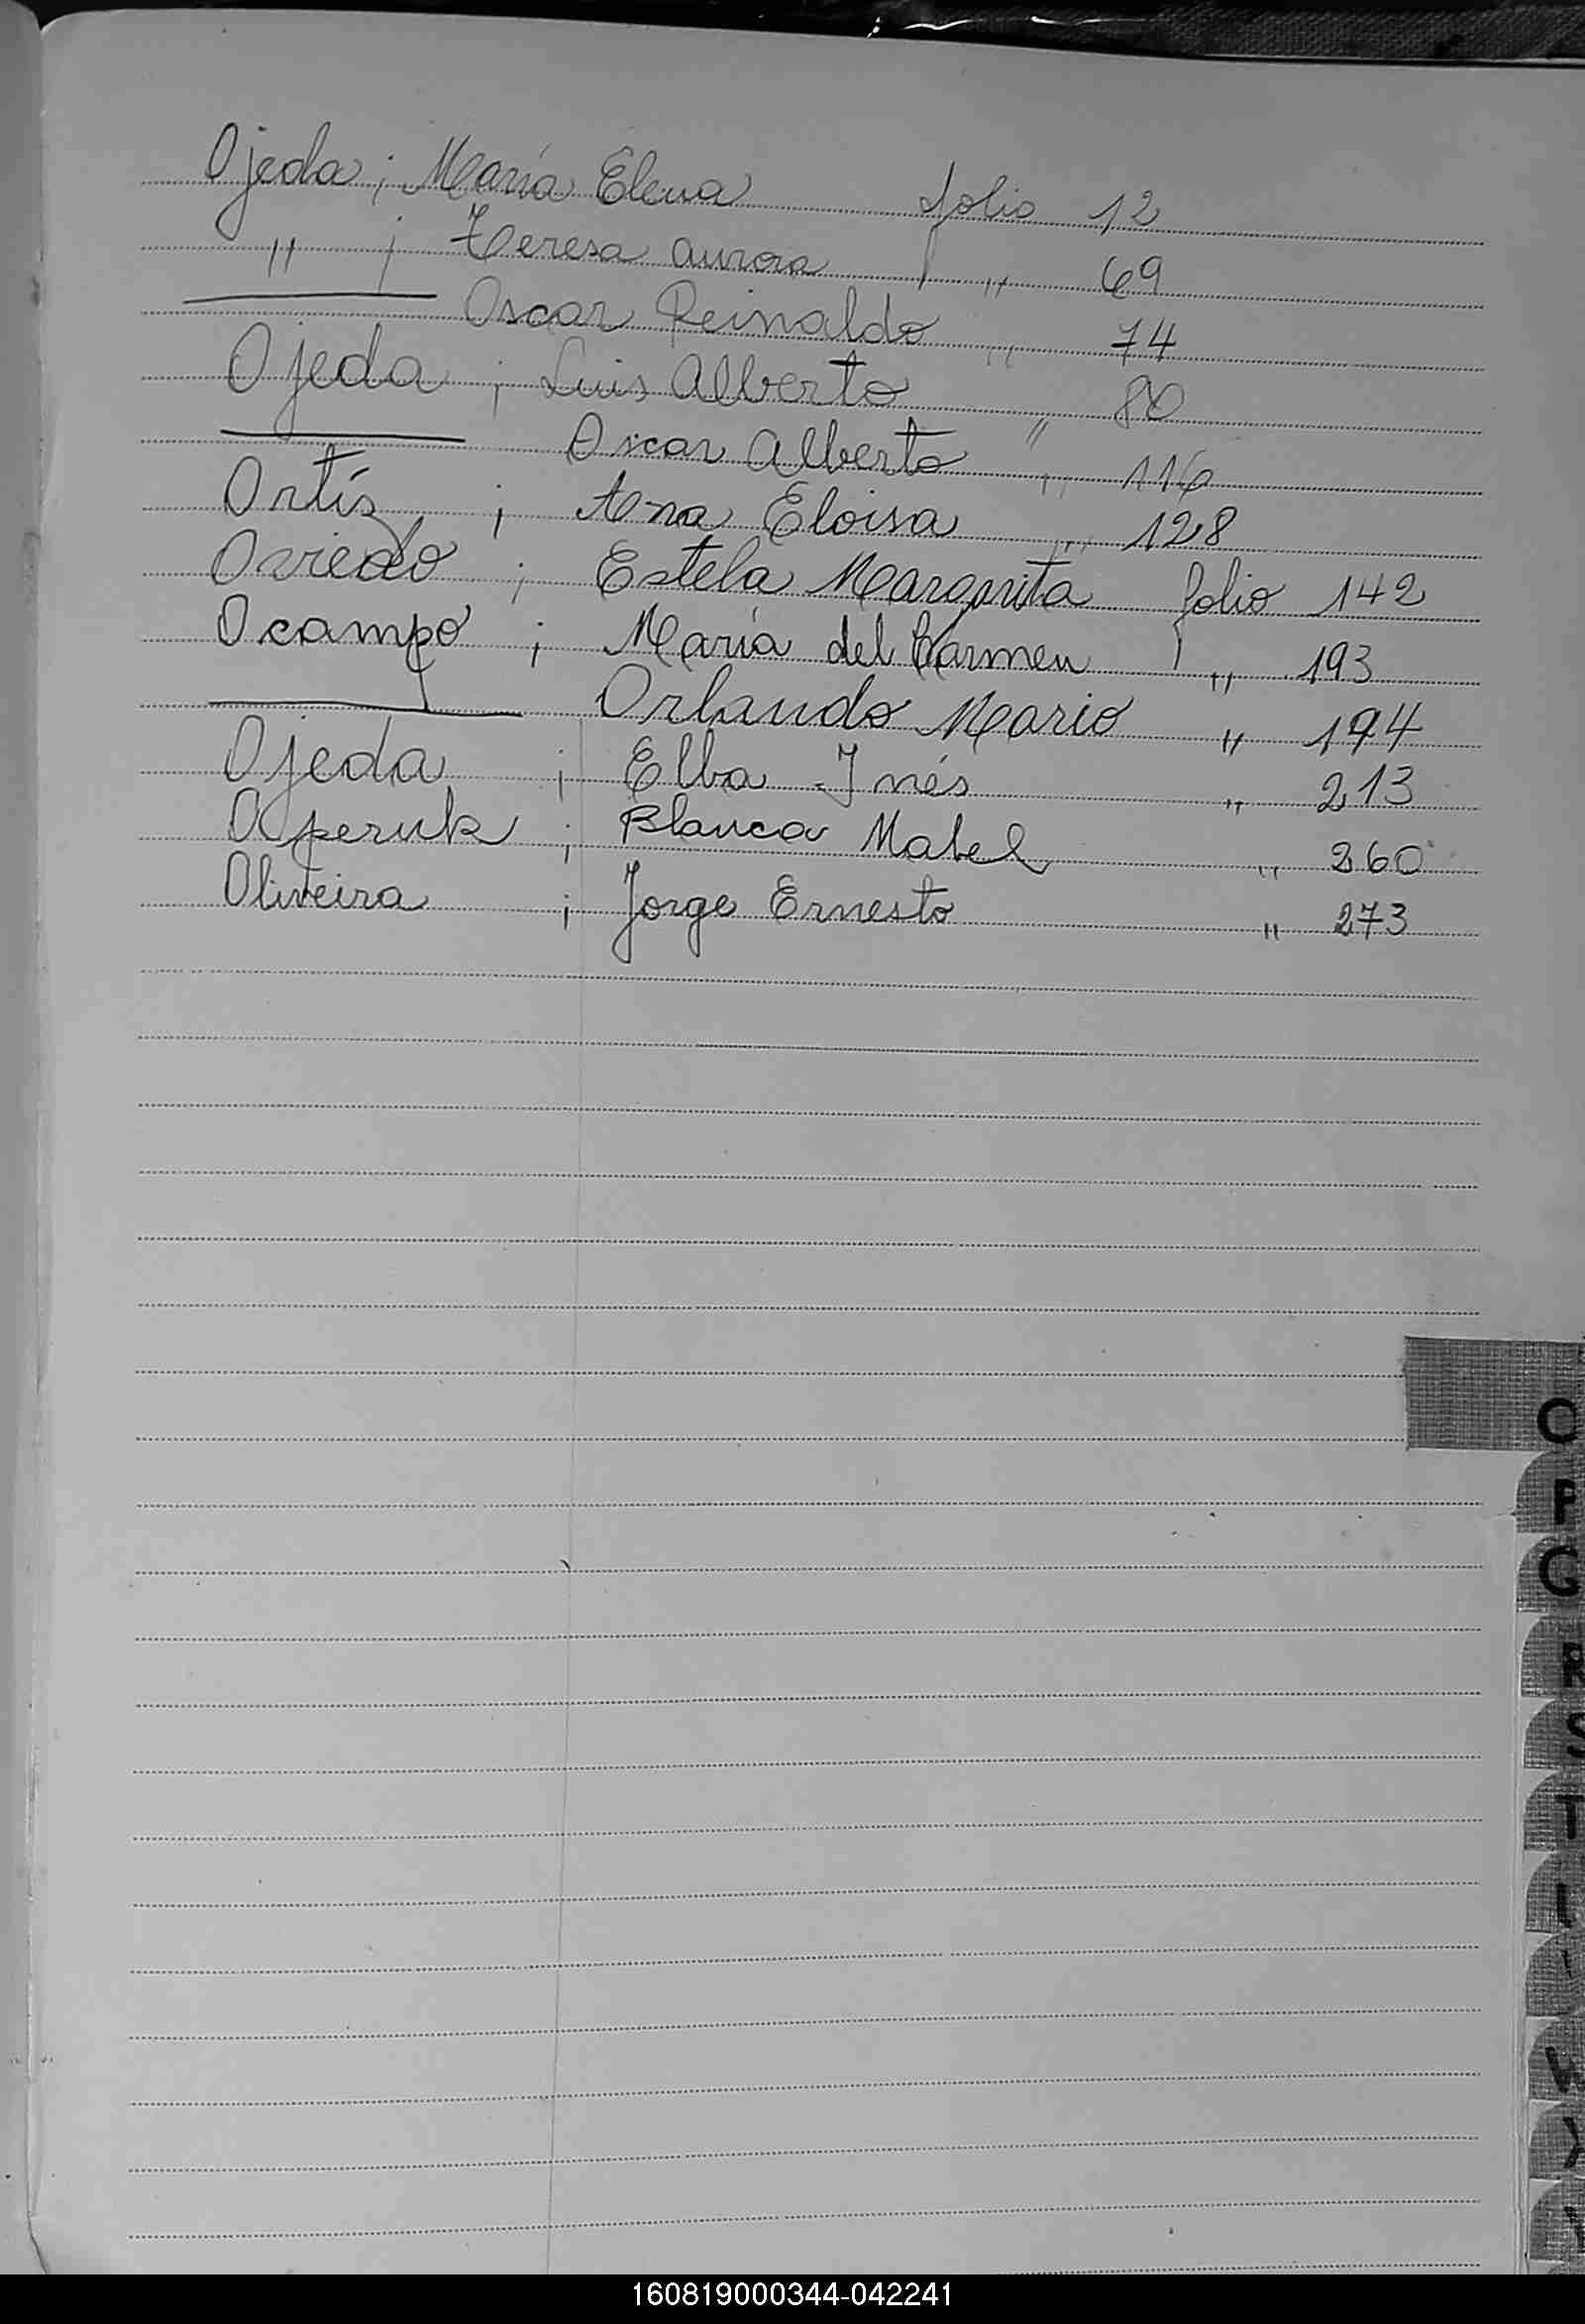 Ojeda; María Elena folio 12
" ; Teresa Aurora " 69
——— Oscar Reinaldo " 74
Ojeda ; Luis Alberto " 80
——— Oscar Alberto " 116
Ortíz ; Ana Eloisa " 128
Oviedo ; Estela Margarita folio 142
Ocampo ; María del Carmen " 193
——— Orlando Mario " 194
Ojeda ; Elba Inés " 213
Operuk ; Blanca Mabel " 260
Oliveira ; Jorge Ernesto " 273
O
P
R
S
T
160819000344-042241